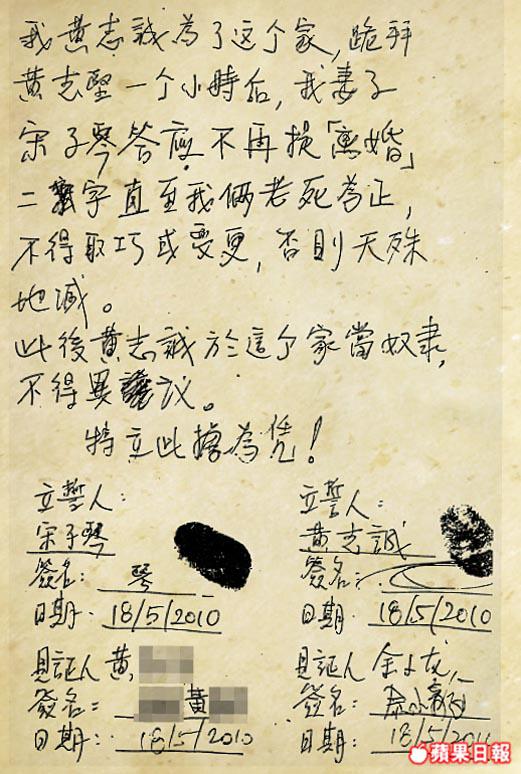 我黄志誠為了这个家，跪拜
黄志堅一个小時后，我妻子
宋子琴答應不再提「离婚」
二字直至我俩老死為止，
不得取巧或变更，否則天殊
地滅。
此後黄志誠於這个家當奴隶，
不得異议。
特立此據為凭！
立誓人：
宋子琴
簽名： 琴
日期：18/5/2010
見証人 黄
簽名： 黄
日期：18/5/2010
立誓人：
黄志誠
簽名：
日期：18/5/2010
見証人 余
簽名：余
日期：18/5/2010
蘋果日報